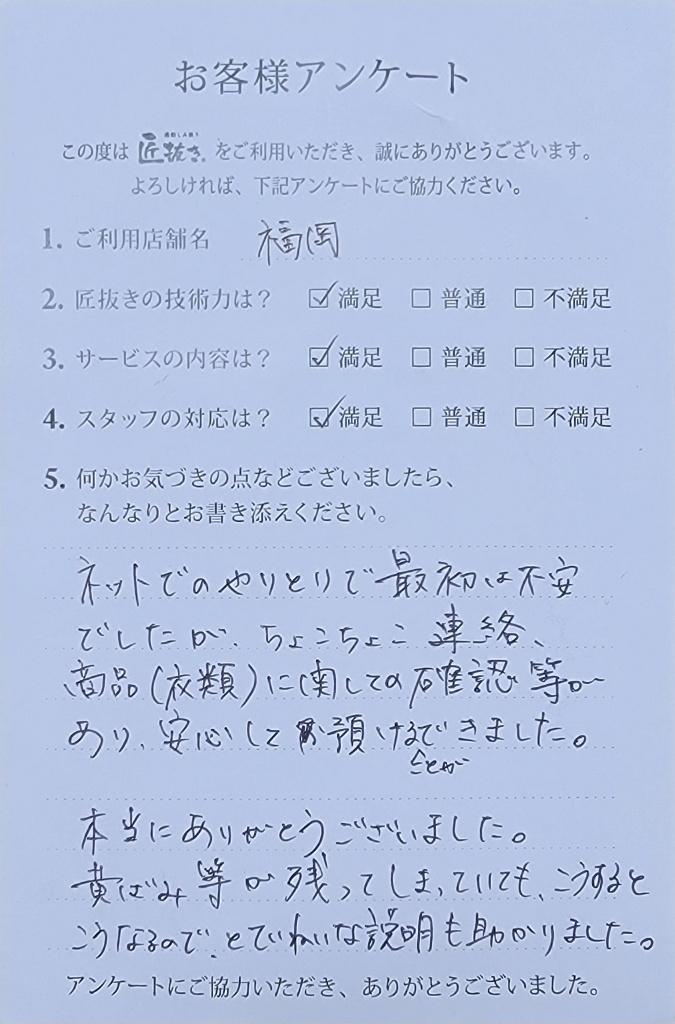 お客様アンケート
この度は 匠抜き をご利用いただき、誠にありがとうございます。
よろしければ、下記アンケートにご協力ください。
1. ご利用店舗名 福岡
2. 匠抜きの技術力は? ☑満足 □普通 □不満足
3. サービスの内容は? ☑満足 □普通 □不満足
4. スタッフの対応は? ☑満足 □普通 □不満足
5. 何かお気づきの点などございましたら、
なんなりとお書き添えください。
ネットでのやりとりで最初は不安
でしたが、ちょこちょこ連絡、
商品(衣類)に関しての確認等が
あり、安心してお預けることができました。
本当にありがとうございました。
黄ばみ等が残ってしまっていても、こうすると
こうなるので、とていねいな説明も助かりました。
アンケートにご協力いただき、ありがとうございました。